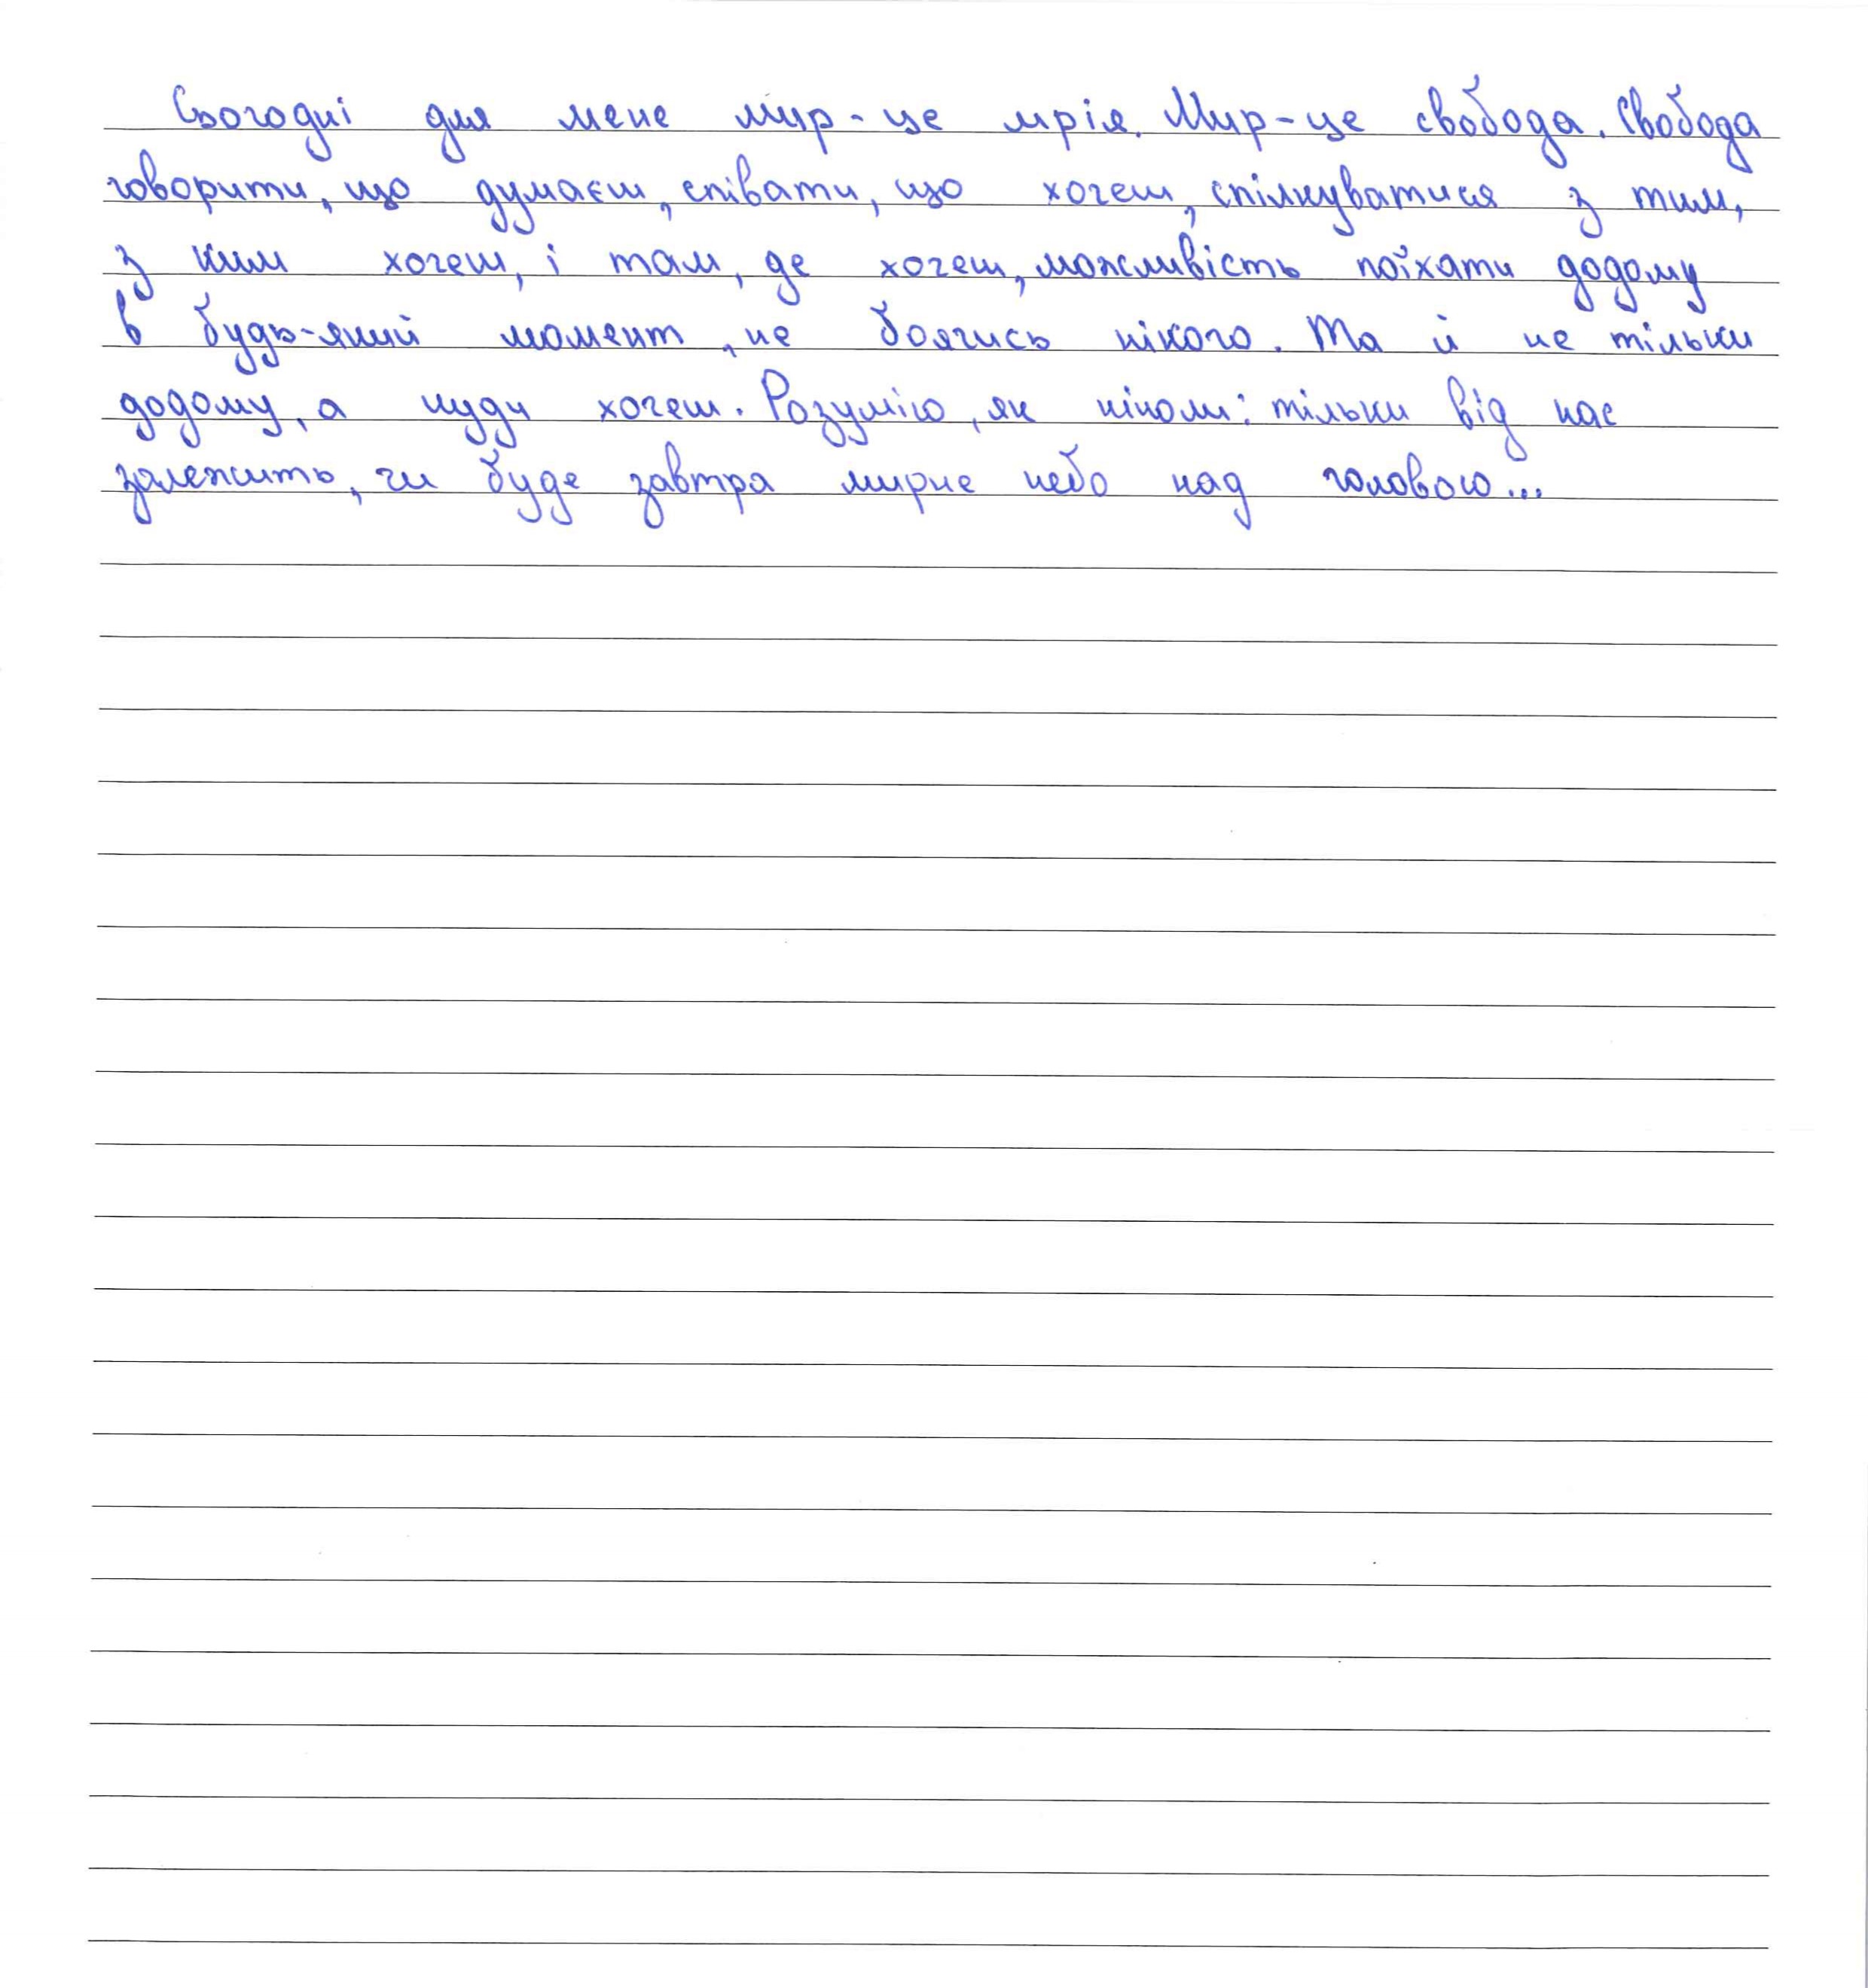 Сьогодні для мене мир - це мрія. Мир - це свобода. Свобода
говорити, що думаєш, співати, що хочеш, спілкуватися з тим,
з ким хочеш, і там, де хочеш, можливість поїхати додому
в будь-який момент, не боячись нікого. Та й не тільки
додому, а куди хочеш. Розумію, як ніколи: тільки від нас
залежить, чи буде завтра мирне небо над головою...